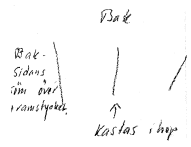 Bak
Bak-
sidans
söm över
framstycket.
Kastas ihop